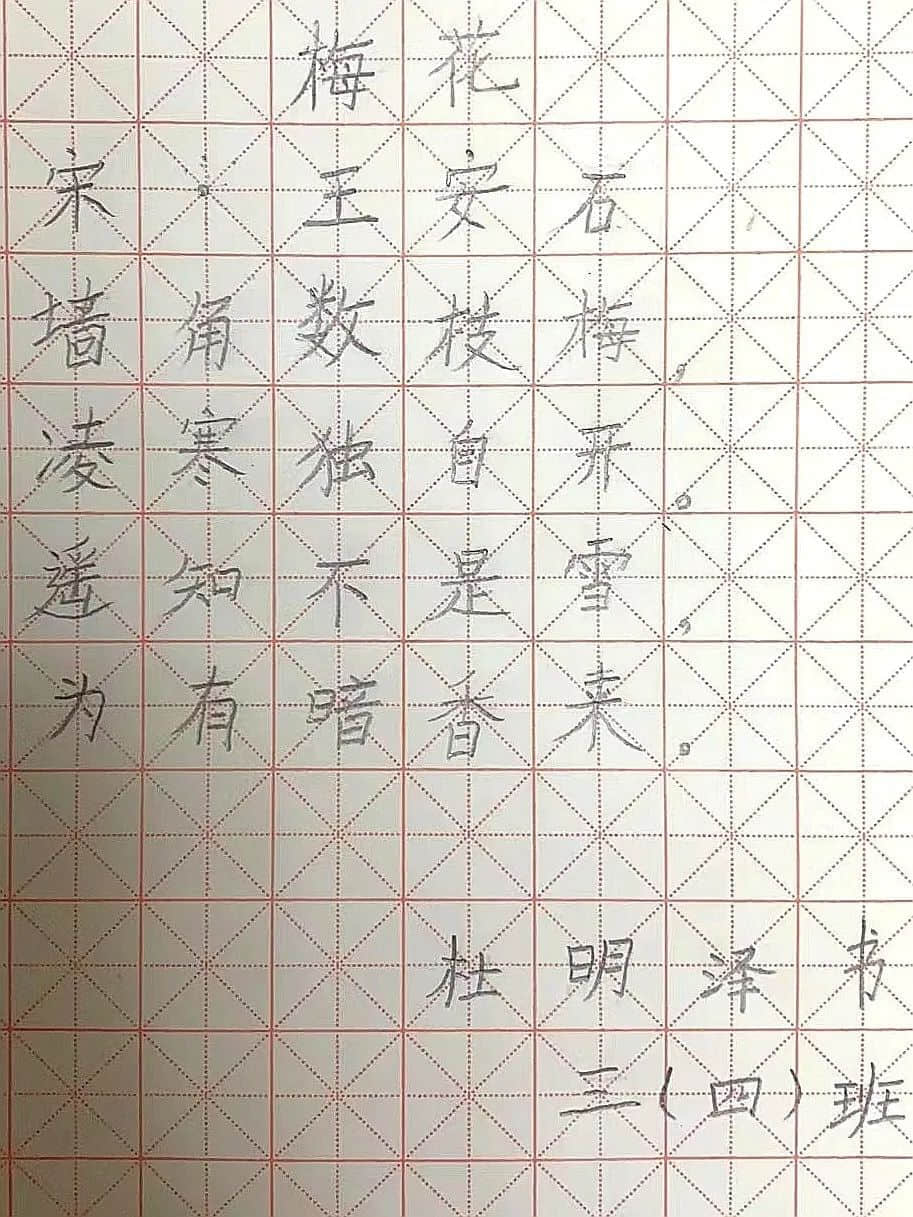 梅花
宋·王安石
墙角数枝梅，
凌寒独自开。
遥知不是雪，
为有暗香来。
杜明泽书
三（四）班